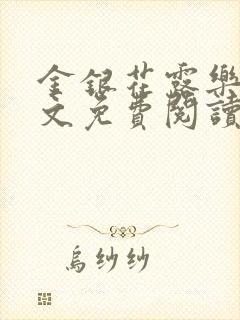 金銀花露樂
文免費閱讀
烏紗紗